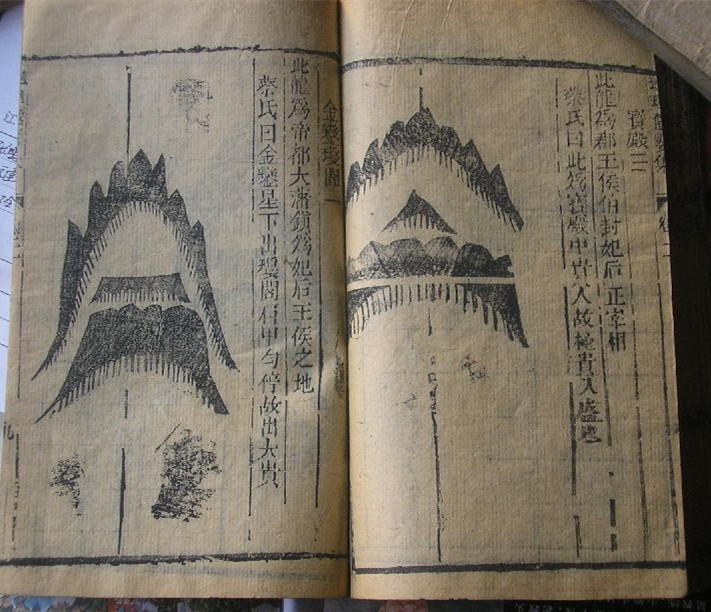 寶殿二
此龍爲郡王侯伯封妃后正宰相
蔡氏曰此爲寶殿中貴人故極貴人盛也
金鑾瓊閣一
此龍爲帝都大藩鎮爲妃后王侯之地
蔡氏曰金鑾星下出瓊閣在中勻停故出大貴